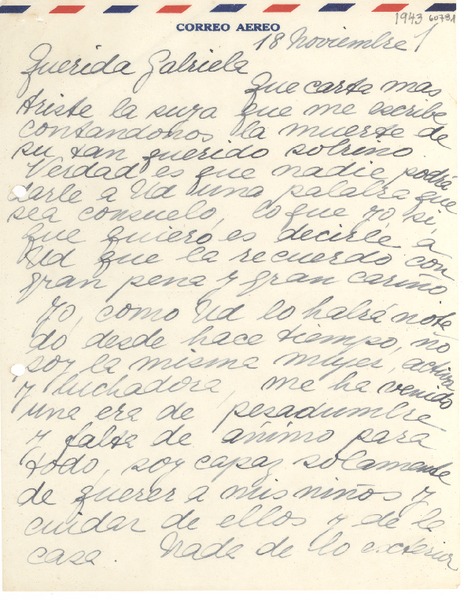 1943 60781
CORREO AEREO
18 Noviembre
Querida Gabriela
Que carta mas
triste la suya que me escribe
contandonos la muerte de
su tan querido sobrino.
Verdad es que nadie podrá
darle a Ud una palabra que
sea consuelo, lo que yo si
que quiero es decirle a
Ud que la recuerdo con
gran pena y gran cariño
Yo, como Ud lo habrá nota
do desde hace tiempo, no
soy la misma mujer, activa
y luchadora, me ha venido
una era de pesadumbre
y falta de animo para
todo, soy capaz solamente
de querer a mis niños y
cuidar de ellos y de la
casa. Nada de lo exterior